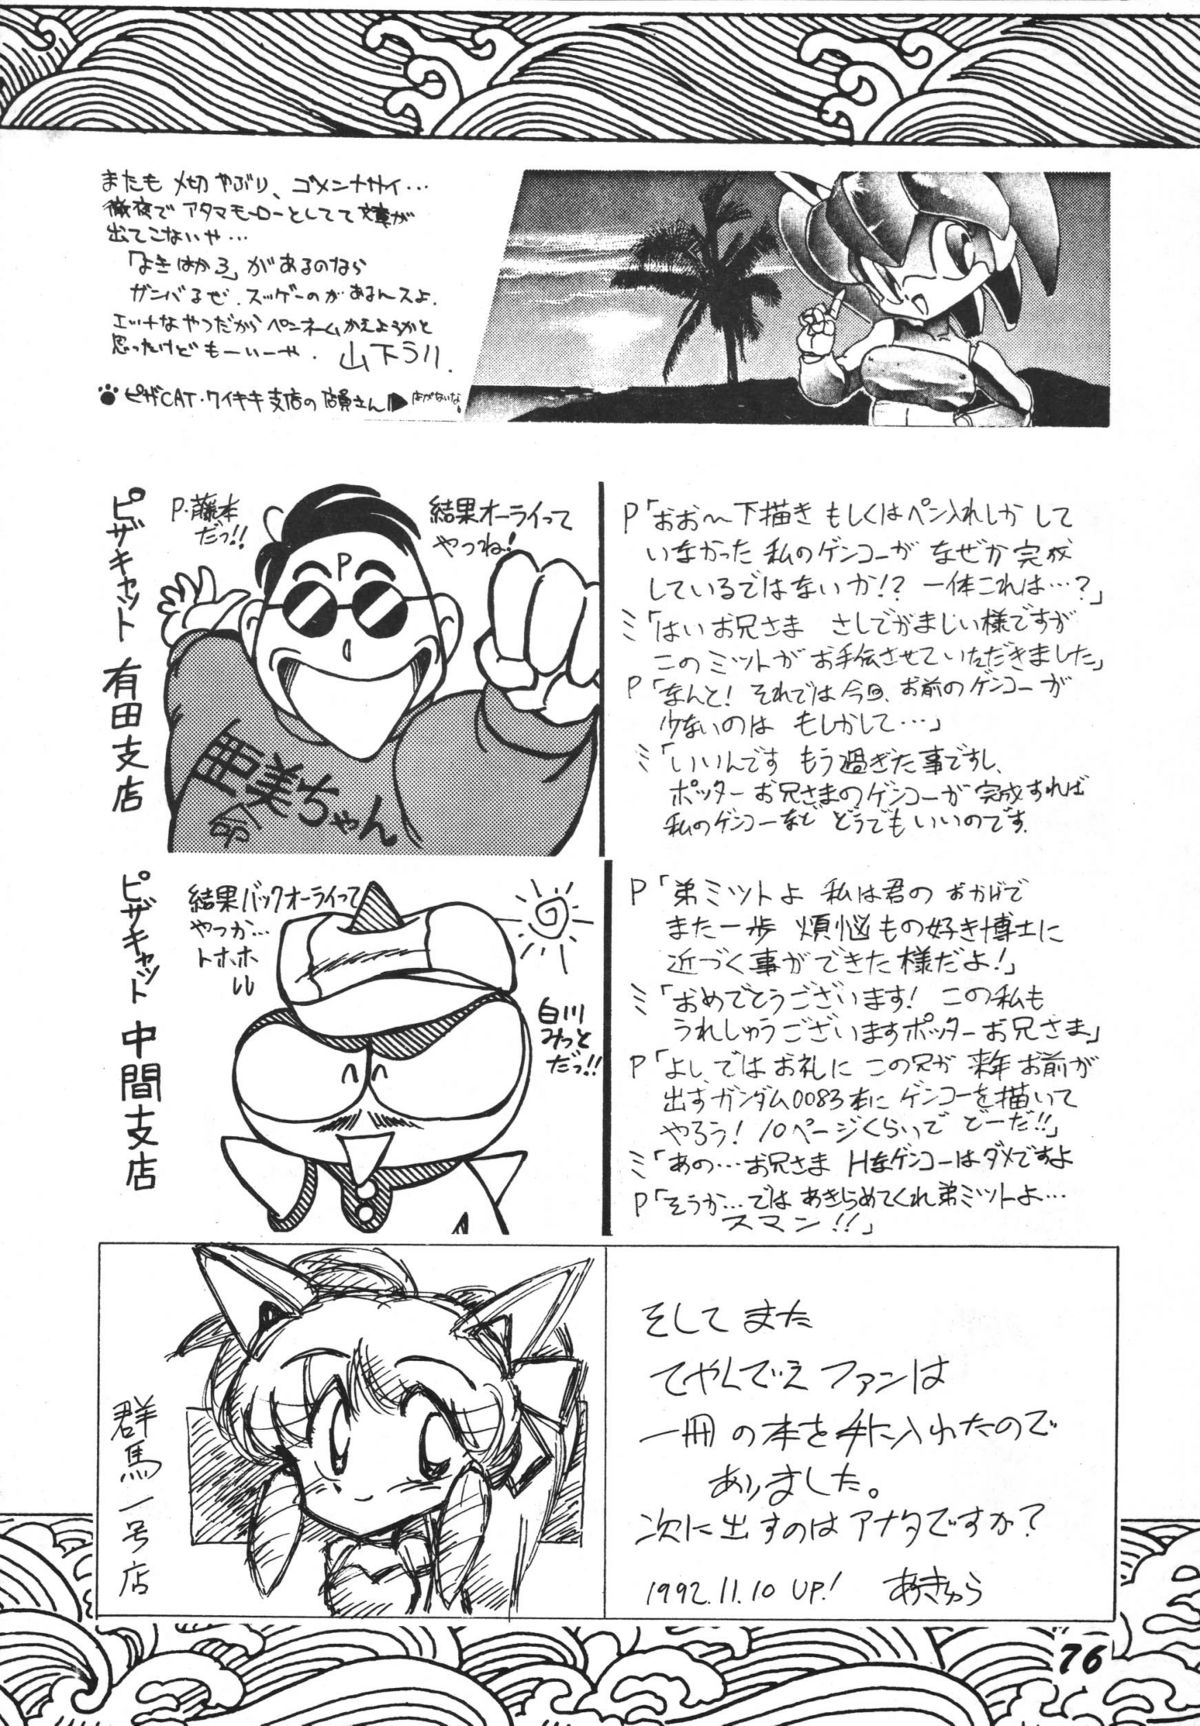 またも〆切やぶり、ゴメンナサイ…
徹夜でアタマモーローとしてて文章が
出てこないや…
「よきはからい」があるのなら
ガンバるぜ.スッゲーのがあるんスよ.
エッチなやつだからペンネームかえようかと
思ったけどもーいーや. 山下うり.
ピザCAT・ワイキキ支店の店員さん
ピザキャット 有田支店
P.藤本
だっ!!
結果オーライって
やつね!
P
亜美ちゃん
命
P「おお〜下描き もしくはペン入れしかして
いなかった 私のゲンコーが なぜか完成
しているではないか!? 一体これは…?」
ミ「はいお兄さま さしでがましい様ですが
このミットが お手伝させていただきました」
P「なんと! それでは今回、お前のゲンコーが
少ないのは もしかして…」
ミ「いいんです もう過ぎた事ですし、
ポッターお兄さまのゲンコーが 完成すれば
私のゲンコーなど どうでもいいのです.
ピザキャット 中間支店
結果バックオーライって
やつか…
トホホ
白川
みっと
だっ!!
P「弟ミットよ 私は君の おかげで
また一歩 煩悩もの好き博士に
近づく事ができた様だよ!」
ミ「おめでとうございます! この私も
うれしゅうございますポッターお兄さま」
P「よし、ではお礼に この兄が 来年お前が
出すガンダム0083本に ゲンコーを描いて
やろう! 10ページくらいで どーだ!!」
ミ「あの…お兄さま Hなゲンコーはダメですよ
P「そうか…では あきらめてくれ弟ミットよ…
スマン!!」
群馬一号店
そしてまた
てやんでえ ファンは
一冊の本を手に入れたので
ありました。
次に出すのはアナタですか?
1992.11.10 UP! あきゅら
76